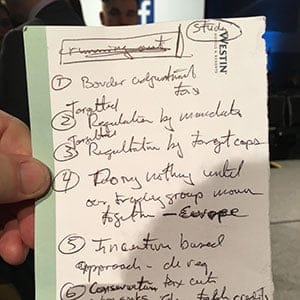 running out
Study
WESTIN
HOTELS & RESORTS
① Border adjustment
tax
Targetted
② Regulation by mandate
Targetted
③ Regulation by target caps
④ Doing nothing until
our trading group moves
together — Europe
⑤ Incentive based
approach
⑥ tax cuts
credits